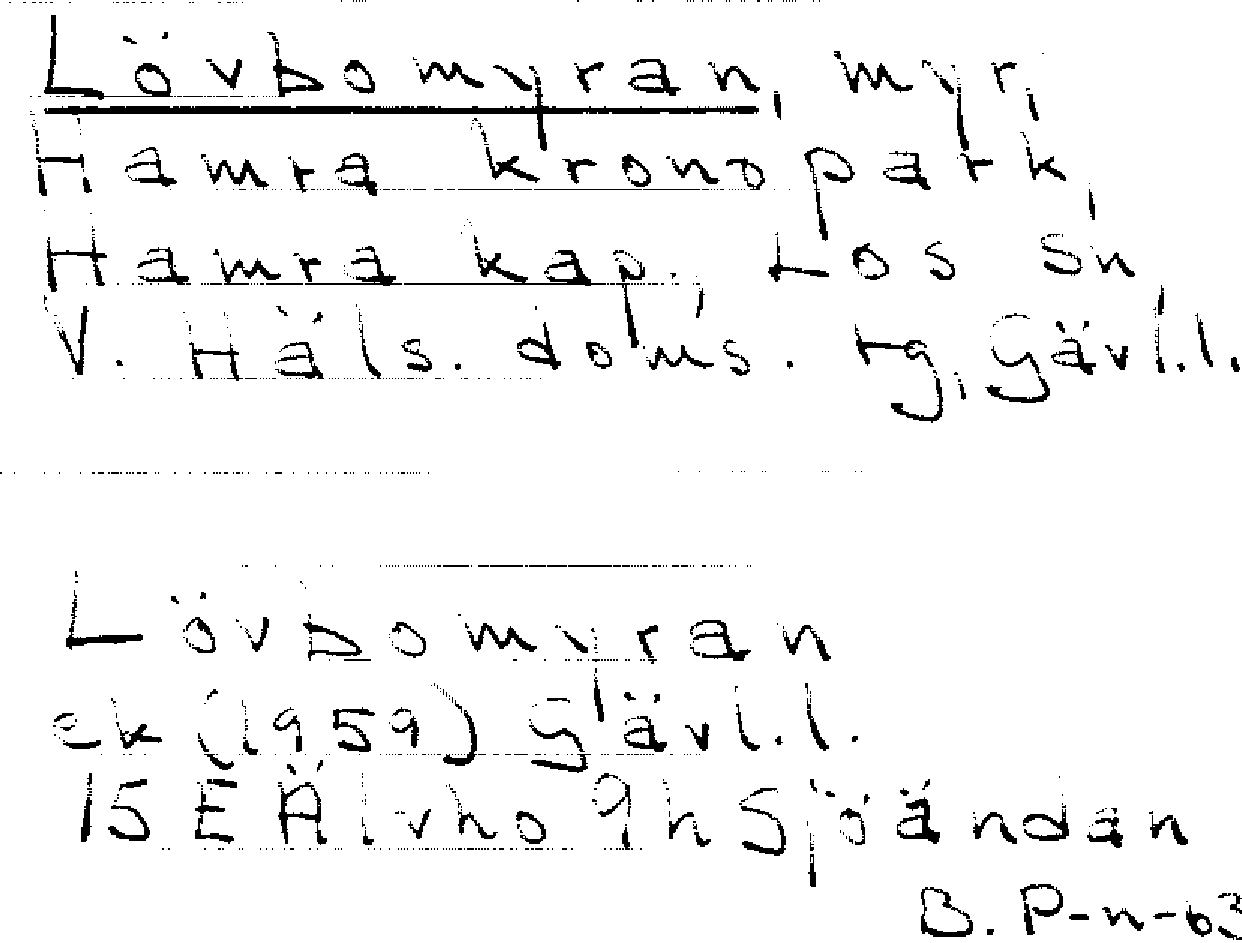 Lövbomyran, myr,
Hamra kronopark,
Hamra kap., Los sn,
V. Häls. doms. tg, Gävl.l.
Lövbomyran
ek (1959) Gävl.l.
15 E Älvho 9h Sjöändan
B. P-n-63